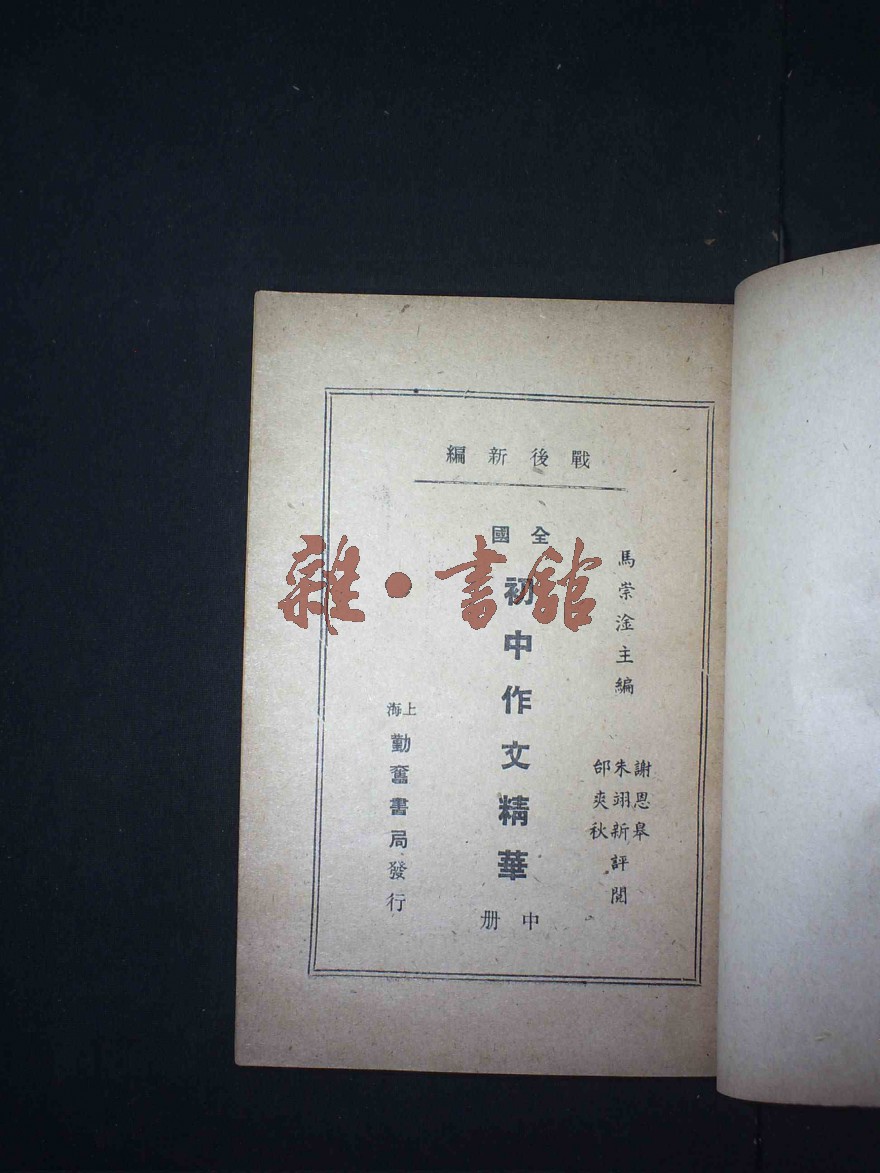 戰後新編
馬崇淦主編
謝恩皋
朱翊新評閱
邰爽秋
全國
初中作文精華
中册
上海
勤奮書局發行
雜·書館